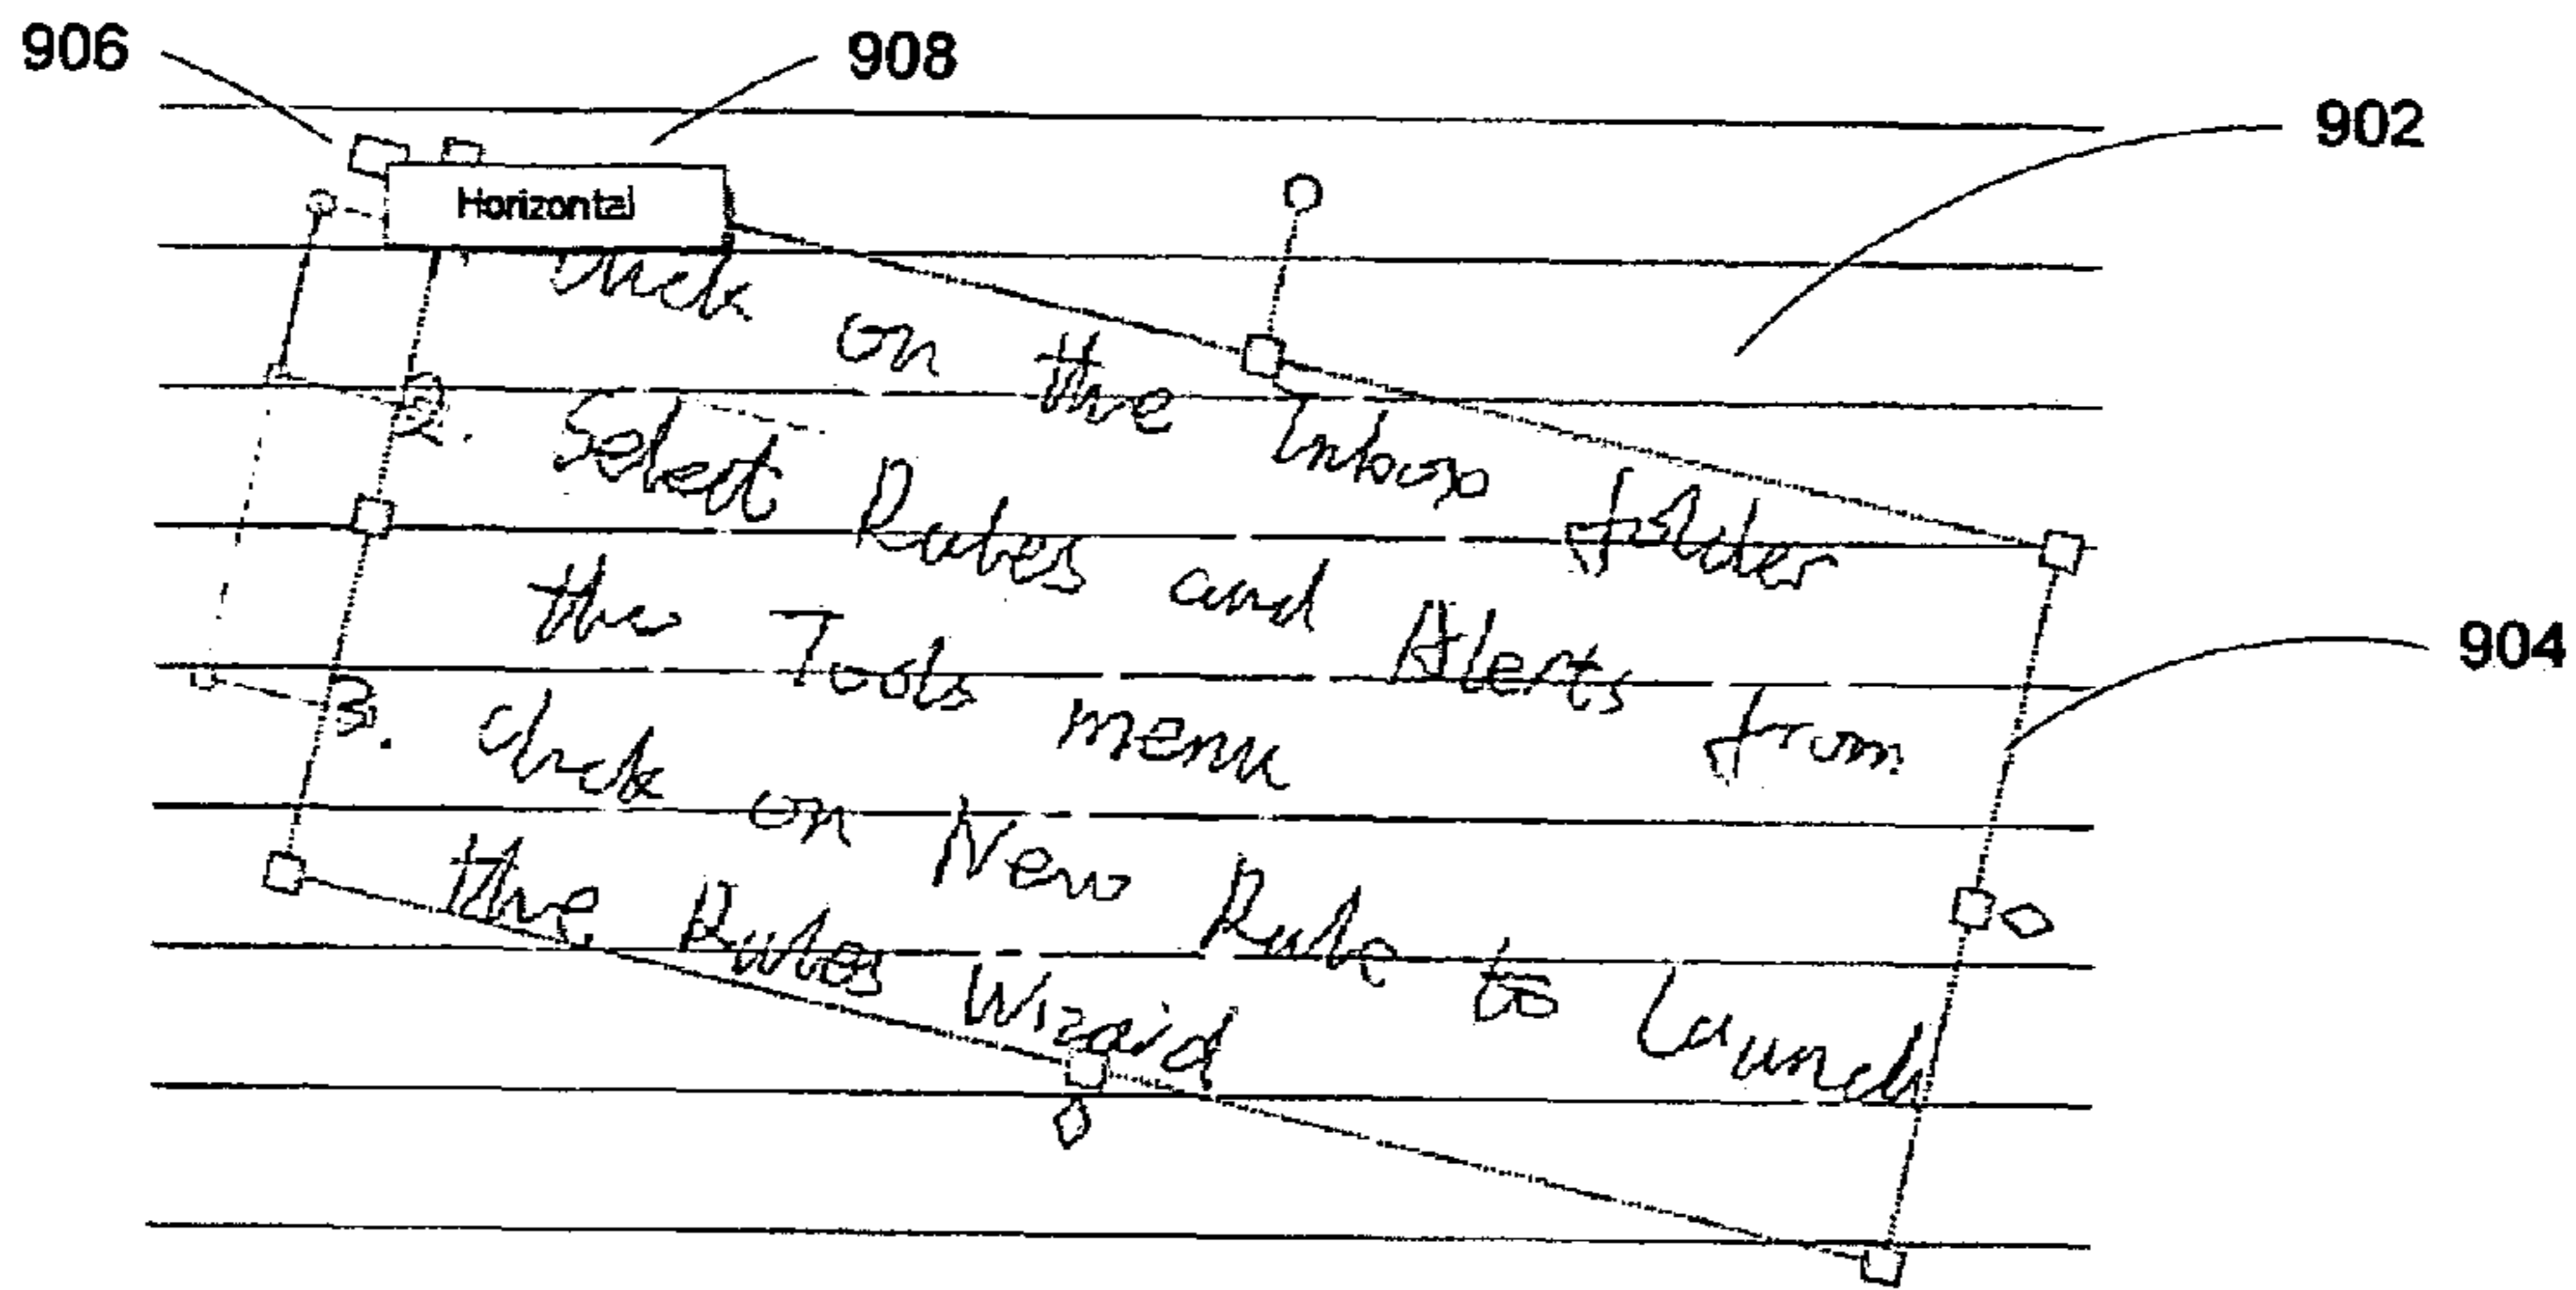 906
908
902
Horizontal
Click on the Inbox folder
2. Select Rules and Alerts from
the Tools menu
904
3. Click on New Rule to launch
the Rules Wizard